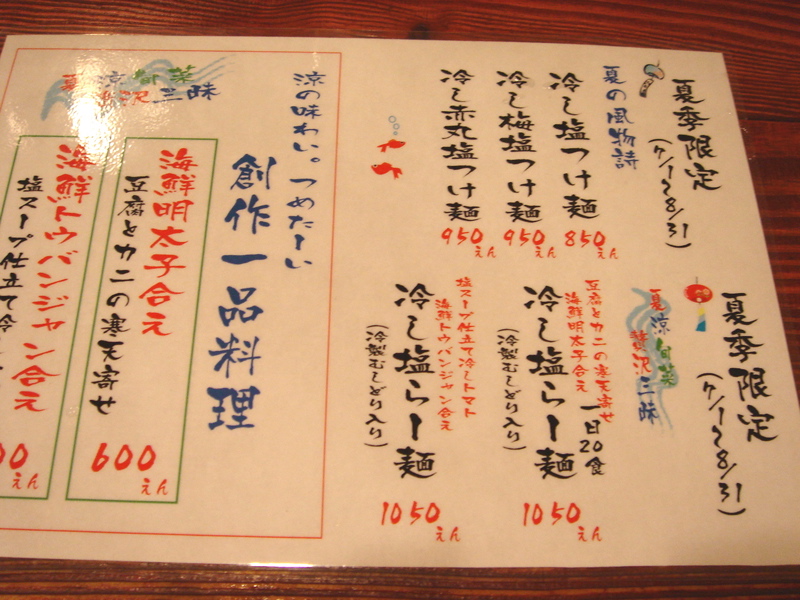 夏季限定
(7/1〜8/31)
夏の風物詩
冷し塩つけ麺
850えん
冷し梅塩つけ麺
950えん
冷し赤丸塩つけ麺
950えん
夏季限定
(7/1〜8/31)
夏涼旬菜
贅沢三昧
豆腐とカニの寒天寄せ
海鮮明太子合え
一日20食
冷し塩らー麺
(冷製むしどり入り)
1050えん
塩スープ仕立て冷しトマト
海鮮トウバンジャン合え
冷し塩らー麺
(冷製むしどり入り)
1050えん
涼の味わい。つめたーい
創作一品料理
夏涼旬菜
沢三昧
海鮮明太子合え
豆腐とカニの寒天寄せ
600えん
海鮮トウバンジャン合え
塩スープ仕立て冷
00えん